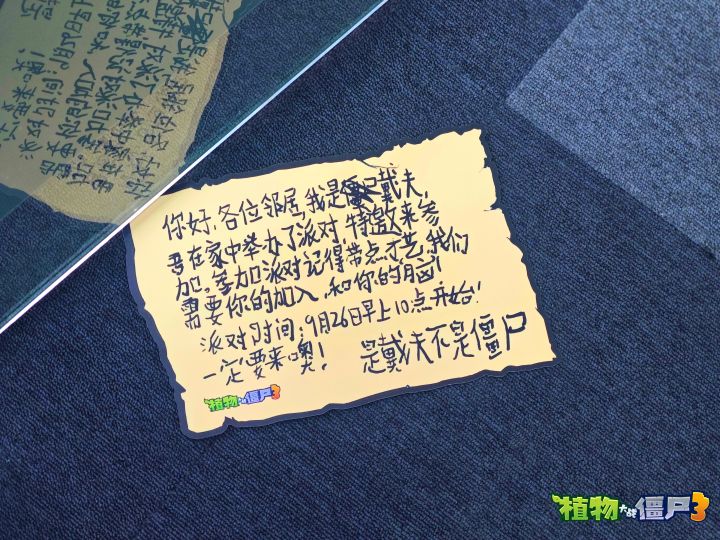 你好,各位邻居,我是僵尸戴夫,
吾在家中举办了派对,特邀来参
加。参加派对记得带点才艺,我们
需要你的加入,和你的脑!
派对时间:9月26日早上10点开始!
一定要来噢! 是戴夫不是僵尸
植物大战僵尸3
植物大战僵尸3